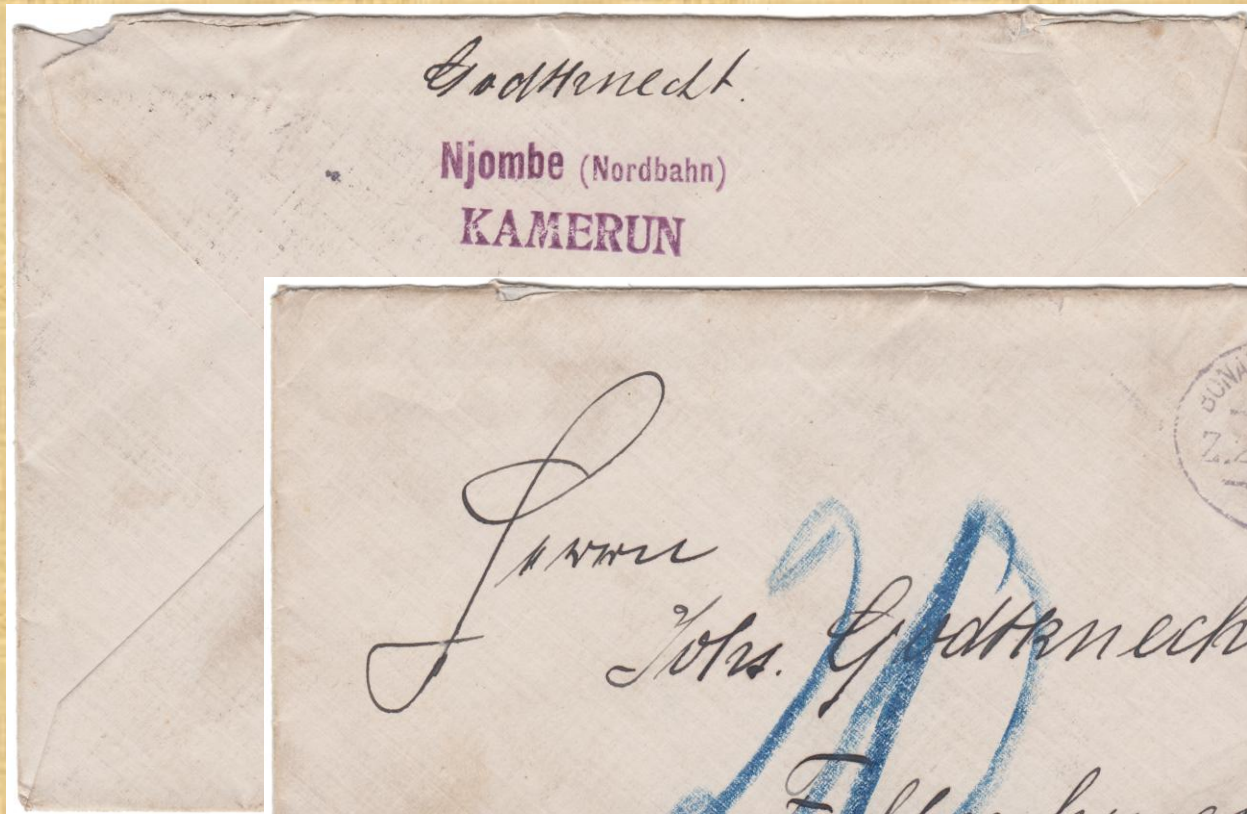 Godtknecht.
Njombe (Nordbahn)
KAMERUN
Herrn
Johs. Godtknech
20